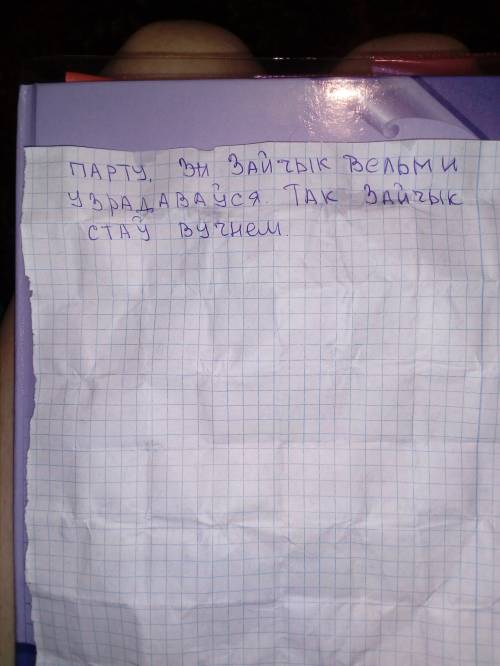 ПАРТУ. ЗН ЗАЙЧЫК ВЕЛЬМИ
УЗРАДАВАЎСЯ. ТАК ЗАЙЧЫК
СТАЎ ВУЧНЕМ.